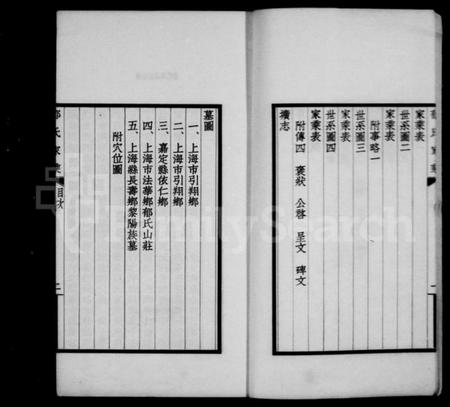 家乘表
世系圖二
家乘表
附事略一
世系圖三
家乘表
世系圖四
家乘表
壙志
附傳四 褒狀 公啓 呈文 碑文
墓圖
一、上海市引翔鄉
二、上海市引翔鄉
三、嘉定縣依仁鄉
四、上海市法華鄉郁氏山莊
五、上海縣長壽鄉黎陽族墓
附穴位圖
氏家乘
目次
二
FamilySearch